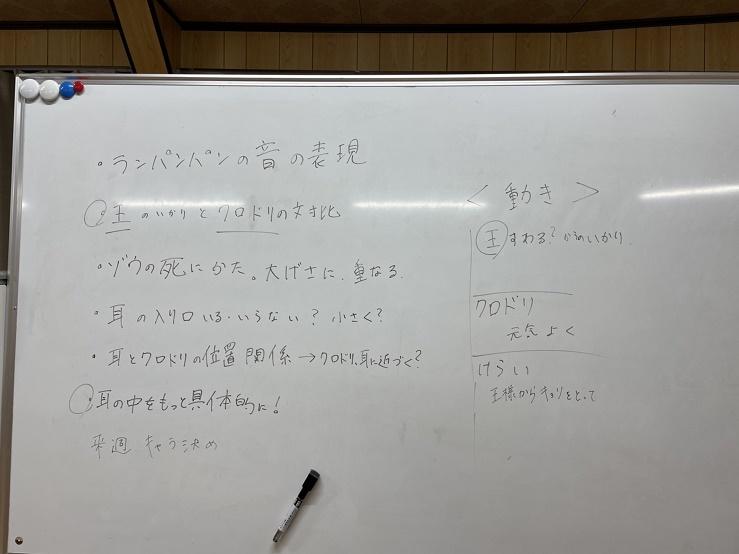 ・ランパンパンの音の表現
・王のいかりとクロドリの対比
・ゾウの死にかた。大げさに、重なる.
・耳の入り口いる・いらない?小さく?
・耳とクロドリの位置関係→クロドリ、耳に近づく?
・耳の中をもっと具体的に!
来週 キャラ決め
<動き>
王 すわる? いかり
クロドリ
元気よく
けらい
王様からキョリをとって